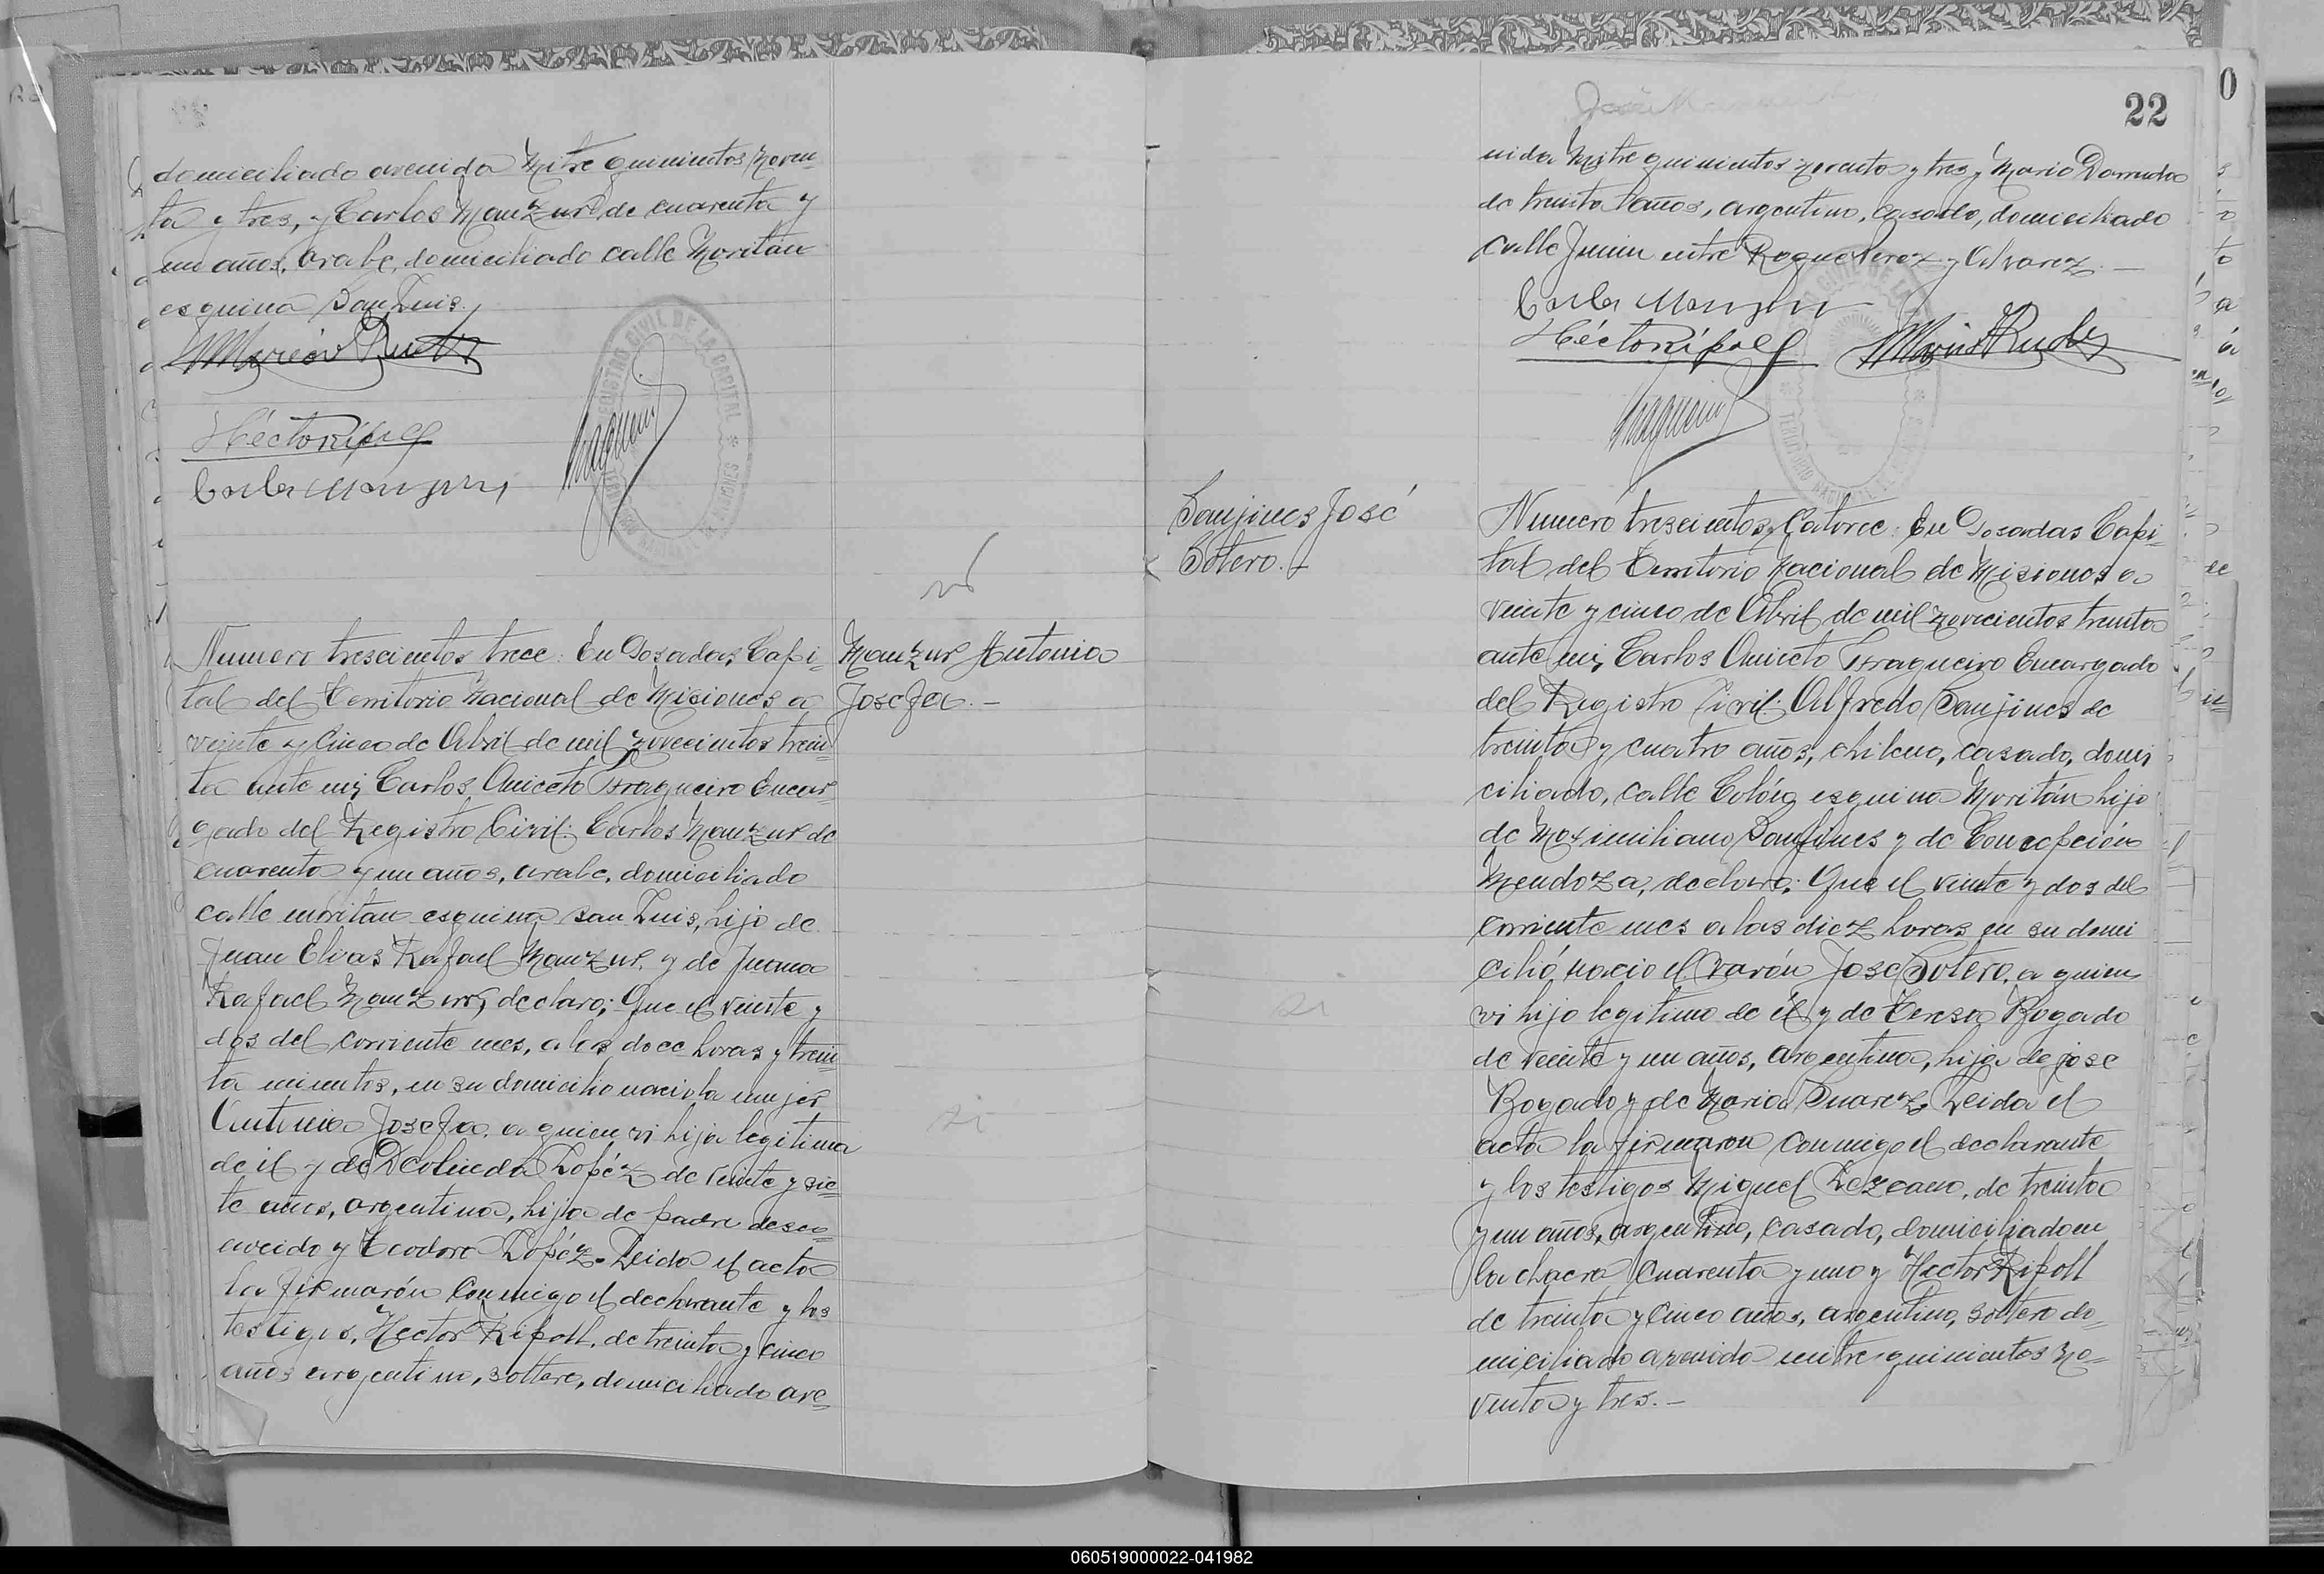 domiciliado avenida Mitre quinientos noven-
ta y tres, y Carlos Manzur, de cuarenta y
un años, arabe, domiciliado calle Moritán
esquina San Luis.
Héctor Ripoll
Carlos Manzur
REGISTRO CIVIL DE LA CAPITAL
Manzur Antonia
Josefa.-
Numero trescientos trece: En Posadas, Capi-
tal del Territorio Nacional de Misiones a
veinte y cinco de Abril de mil novecientos trein
ta ante mi, Carlos Aniceto Fragueiro Encar-
gado del Registro Civil: Carlos Manzur de
cuarenta y un años, arabe, domiciliado
calle moritan esquina san Luis, hijo de
Juan Elias Rafael Manzur, y de Juana
Rafael Manzur, declaro: Que el veinte y
dos del corriente mes, a las doce horas y trein
ta minutos, en su domicilio nacio la mujer
Antonia Josefa, a quien vi hija legitima
de él y de Deolinda Lopéz de veinte y sie-
te años, argentina, hija de padre desco-
nocido y Teodora Lopéz. Leida el acta
la firmarón conmigo el declarante y los
testigos, Hector Ripoll, de treinta y cinco
años argentino, soltero, domiciliado ave-
si
22
nida Mitre quinientos noventa y tres y Mario Darruda
de treinta años, argentino, casado, domiciliado
calle Junin entre Roque Perez y Alvarez.-
Carlos Manzur
Héctor Ripoll
Sanjines José
Sotero.-
Numero trescientos, Catorce: En Posadas Capi-
tal del Territorio Nacional de Misiones a
veinte y cinco de Abril de mil novecientos treinta
ante mi, Carlos Aniceto Fragueiro Encargado
del Registro Civil: Alfredo Sanjines de
treinta y cuatro años, chileno, casado, domi
ciliado, calle Colón esquina Moritán hijo
de Maximiliano Sanjines y de Concepción
Mendoza, declaro: Que el veinte y dos del
corriente mes a las diez horas en su domi
cilió nacio el varón Jose Sotero, a quien
vi hijo legitimo de él y de Teresa Bogado
de veinte y un años, argentina, hija de jose
Bogado y de Maria Suarez, Leida el
acta la firmaron conmigo el declarante
y los testigos Miguel Lezcano, de treinta
y un años, argentino, casado, domiciliado en
la chacra cuarenta y uno y Hector Ripoll
de treinta y cinco años, argentino, soltero do-
miciliado avenida mitre quinientos no-
venta y tres.-
si
060519000022-041982